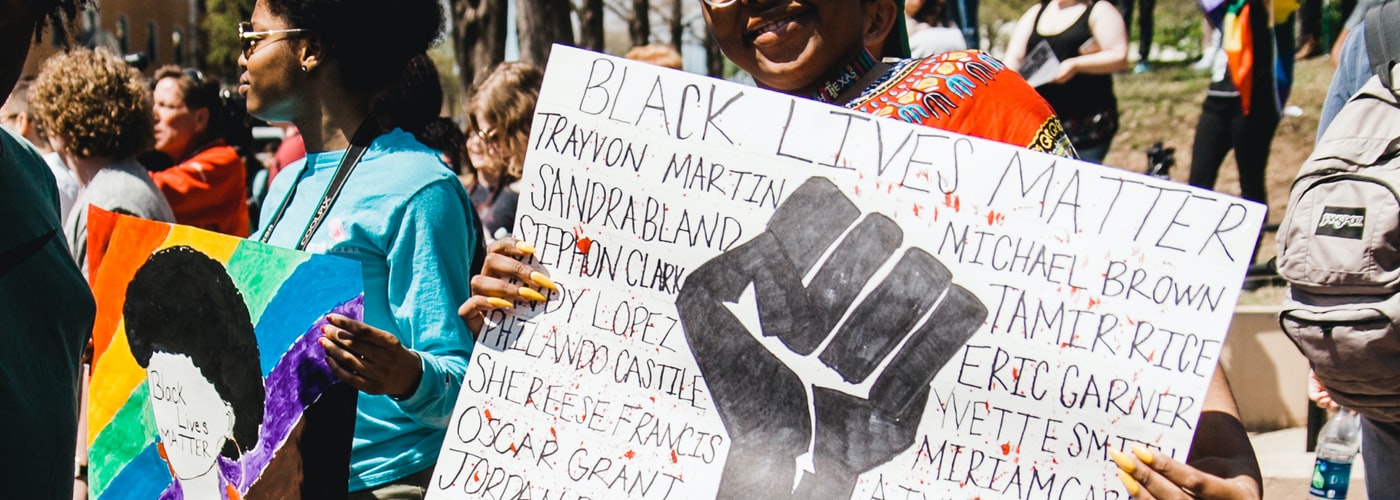 BLACK LIVES MATTER
TRAYVON MARTIN
SANDRA BLAND
STEPHON CLARK
LOPEZ
PHILANDO CASTILE
SHEREESE FRANCIS
OSCAR GRANT
MICHAEL BROWN
TAMIR RICE
ERIC GARNER
YVETTE
MIRIAM
Black
Lives
MATTER
COOLPIX
TEXAS
JANSPORT